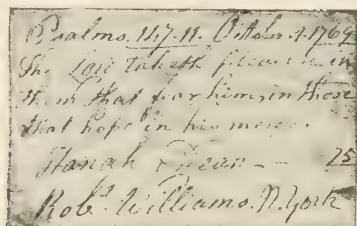 Psalms. 147.11. October 1. 1769
The Lord taketh pleasure in
them that fear him, in those
that hope in his mercy.
Hanah — 25
Robt. Williams. N. York